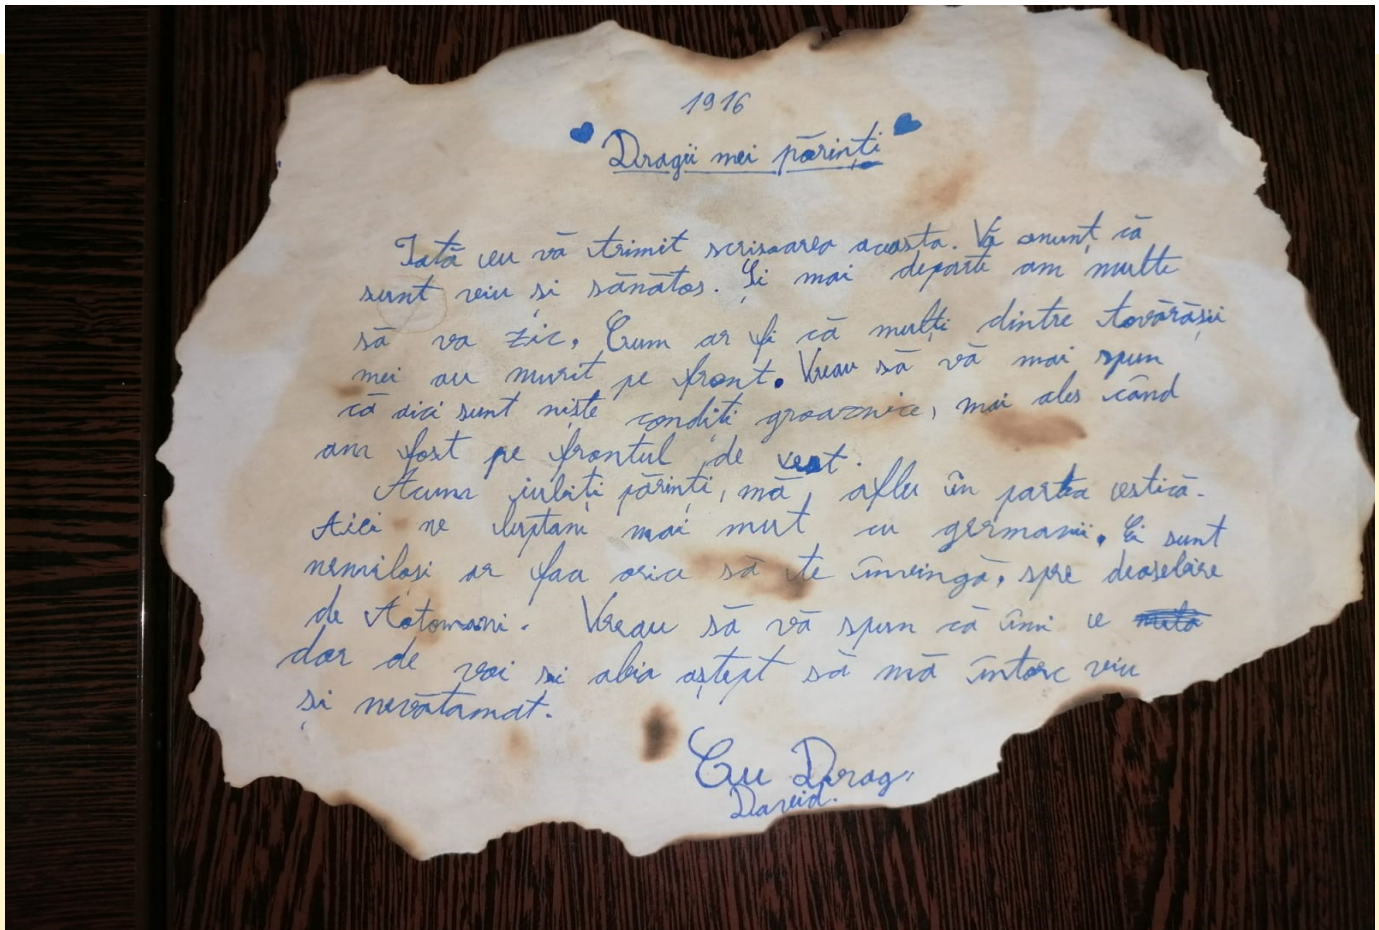 1916
Dragii mei părinți
Iată eu vă trimit scrisoarea acasta. Vă anunț că
sunt viu și sănătos. Și mai departe am multe
să va zic. Cum ar fi că mulți dintre tovărășii
mei au murit pe front. Vreau să vă mai spun
că aici sunt niște condiți groaznice, mai ales când
am fost pe frontul de vest.
Acum iubiți părinți, mă aflu în partea estică.
Aici ne luptam mai mut cu germanii. Ei sunt
nemiloși ar faa orice să te învingă, spre deoseбire
de Aotomani. Vreau să vă spun că îmi e
dor de voi si abia aștept să mă întorc viu
și nevătamat.
Cu Drag,
David.